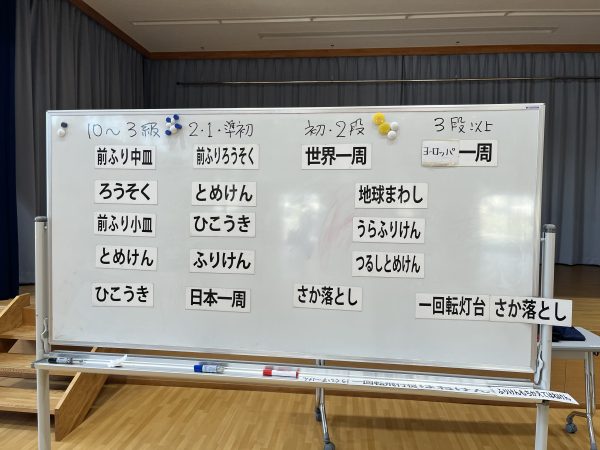 10～3級 2・1・準初 初・2段 3段以上
前ふり中皿 前ふりろうそく 世界一周 ヨーロッパ一周
ろうそく とめけん 地球まわし
前ふり小皿 ひこうき うらふりけん
とめけん ふりけん つるしとめけん
ひこうき 日本一周 さか落とし 一回転灯台 さか落とし